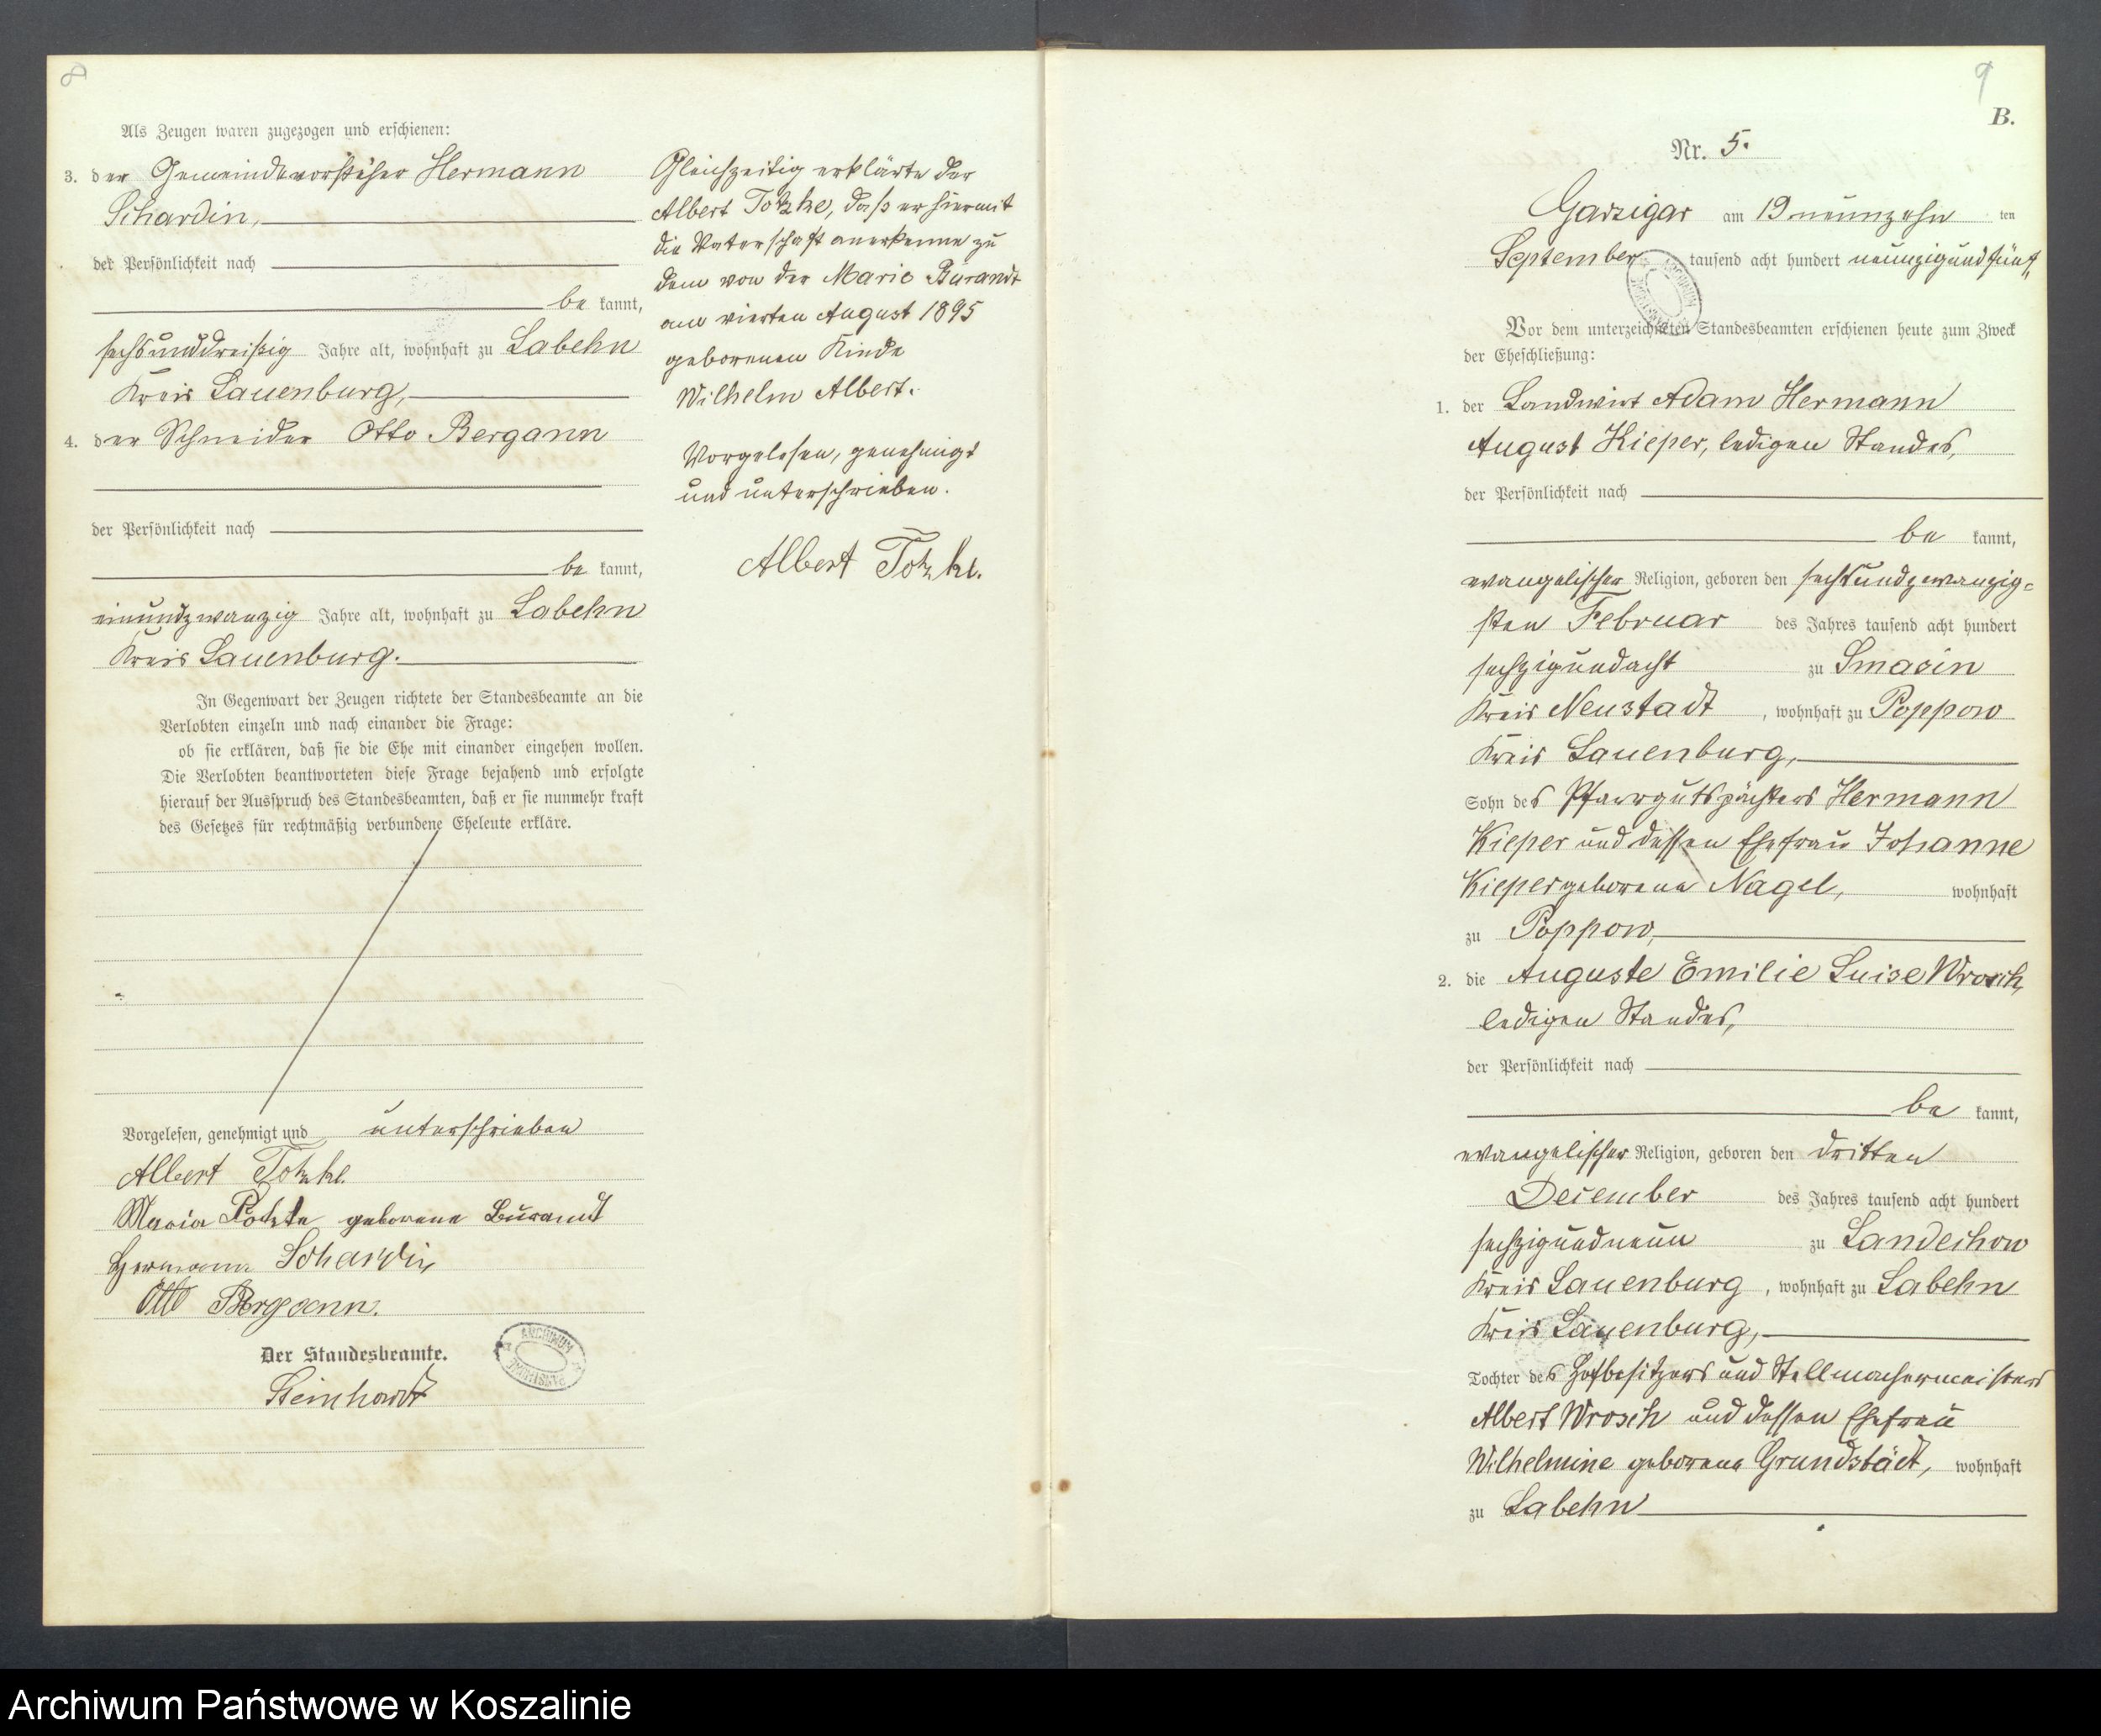 8
Als Zeugen waren zugezogen und erschienen:
3. der Gemeindevorsteher Hermann
Schardin,
der Persönlichkeit nach
be kannt,
sechsunddreißig Jahre alt, wohnhaft zu Labehn
Kreis Lauenburg,
4. der Schneider Otto Bergann
der Persönlichkeit nach
be kannt,
einundzwanzig Jahre alt, wohnhaft zu Labehn
Kreis Lauenburg.
In Gegenwart der Zeugen richtete der Standesbeamte an die
Verlobten einzeln und nach einander die Frage:
ob sie erklären, daß sie die Ehe mit einander eingehen wollen.
Die Verlobten beantworteten diese Frage bejahend und erfolgte
hierauf der Ausspruch des Standesbeamten, daß er sie nunmehr kraft
des Gesetzes für rechtmäßig verbundene Eheleute erkläre.
Vorgelesen, genehmigt und unterschrieben
Albert Totzke.
Maria geborene Burandt
Hermann Schardin
Otto Bergann.
Der Standesbeamte.
Steinhardt
ARCHIWUM
Gleichzeitig erklärte der
Albert Totzke, daß er hiermit
die Vaterschaft anerkenne zu
dem von der Marie Burandt
am vierten August 1895
geborenen Kinde
Wilhelm Albert.
Vorgelesen, genehmigt
und unterschrieben.
Albert Totzke.
9
B.
Nr. 5.
Garzigar am 19 neunzehn ten
September tausend acht hundert neunzigundfünf
ARCHIWUM
Vor dem unterzeichneten Standesbeamten erschienen heute zum Zweck
der Eheschließung:
1. der Landwirt Adam Hermann
August Kieper, ledigen Standes,
der Persönlichkeit nach
be kannt,
evangelischer Religion, geboren den sechsundzwanzig-
sten Februar des Jahres tausend acht hundert
sechzigundacht zu Smasin
Kreis Neustadt, wohnhaft zu Poppow
Kreis Lauenburg,
Sohn des Pfarrgutspächters Hermann
Kieper und dessen Ehefrau Johanne
Kieper geborene Nagel, wohnhaft
zu Poppow,
2. die Auguste Emilie Luise Wrosch,
ledigen Standes,
der Persönlichkeit nach
be kannt,
evangelischer Religion, geboren den dritten
December des Jahres tausend acht hundert
sechzigundneun zu Landechow
Kreis Lauenburg, wohnhaft zu Labehn
Kreis Lauenburg,
Tochter des Hofbesitzers und Stellmachermeisters
Albert Wrosch und dessen Ehefrau
Wilhelmine geborene Grundstädt, wohnhaft
zu Labehn
Archiwum Państwowe w Koszalinie